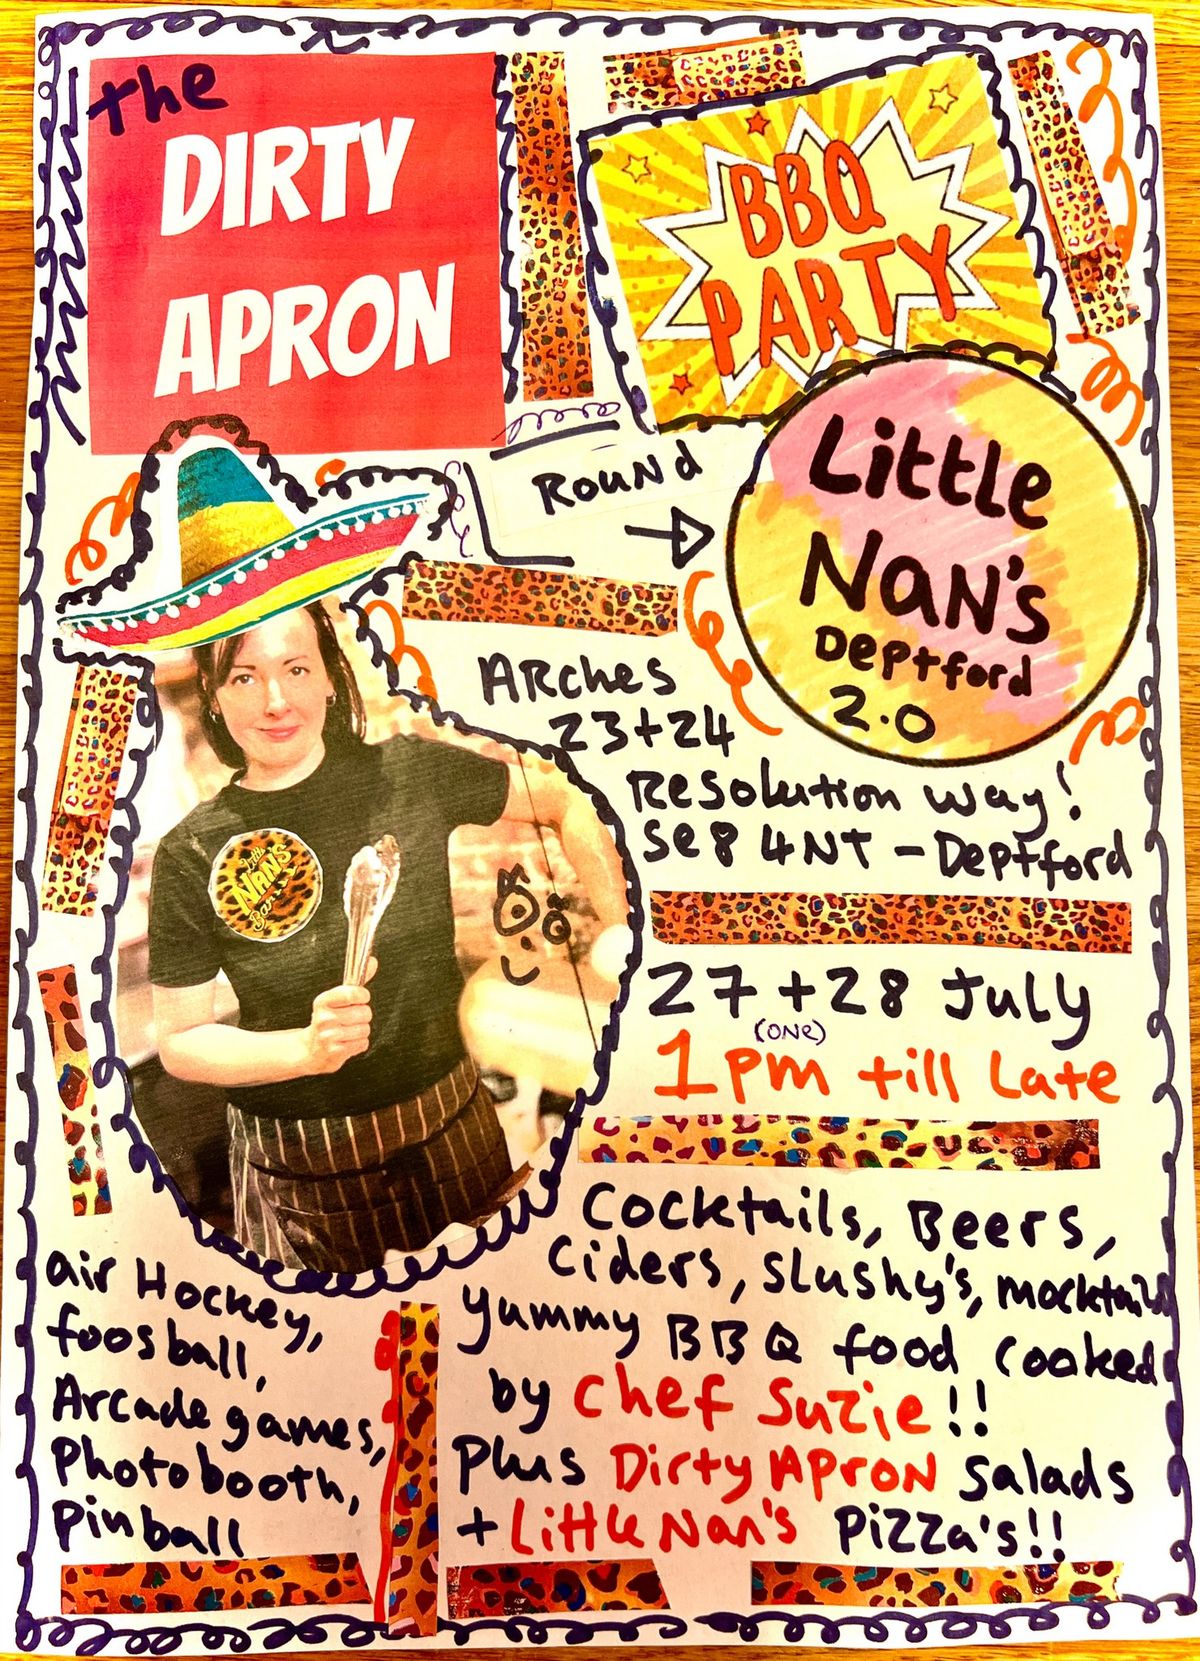 the
DIRTY
APRON
BBQ
PARTY
ROUNd
Little
NaN's
Deptford
2.0
ARches
23+24
Resolution way!
Se8 4NT - Deptford
Little
NANS
Bar
27 + 28 July
(ONE)
1pm till Late
Cocktails, Beers,
Ciders, slushy's, mocktails
yummy BBQ food cooked
by Chef Suzie!!
Plus Dirty APRON salads
+ Little Nan's Pizza's!!
air Hockey,
foosball,
Arcade games,
Photobooth,
Pinball